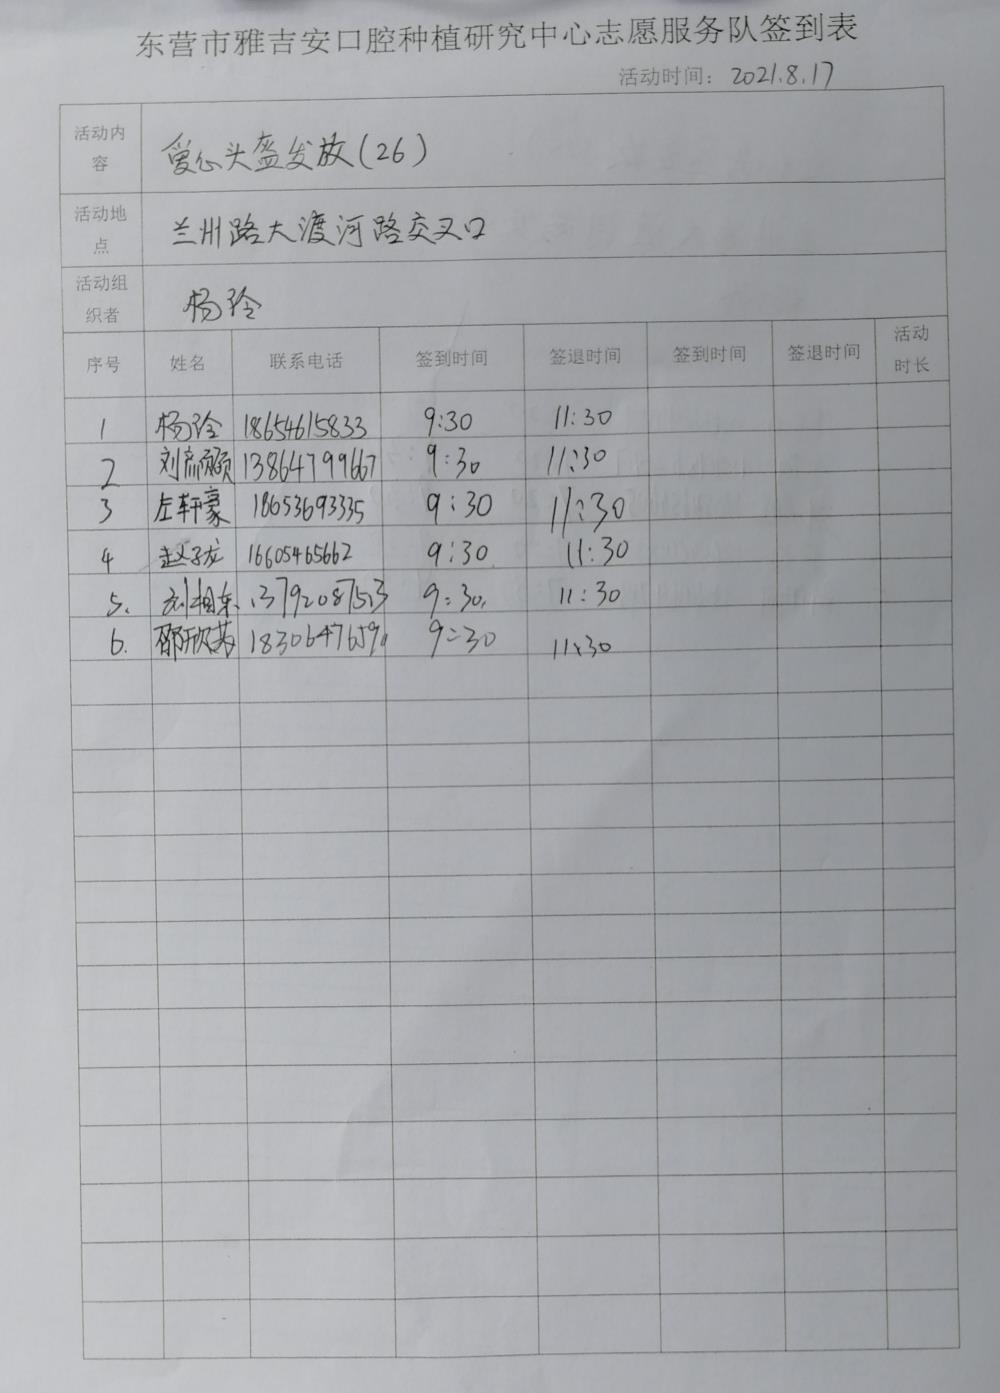 东营市雅吉安口腔种植研究中心志愿服务队签到表
活动时间：2021.8.17
活动内容 爱心头盔发放(26)
活动地点 兰州路大渡河路交叉口
活动组织者 杨玲
序号 姓名 联系电话 签到时间 签退时间 签到时间 签退时间 活动时长
1 杨玲 18654615833 9:30 11:30
2 刘彦颐 13864799667 9:30 11:30
3 左轩豪 18653693335 9:30 11:30
4 赵子龙 16605465662 9:30 11:30
5. 刘相东 9:30 11:30
6. 邵欣苒 9:30 11:30